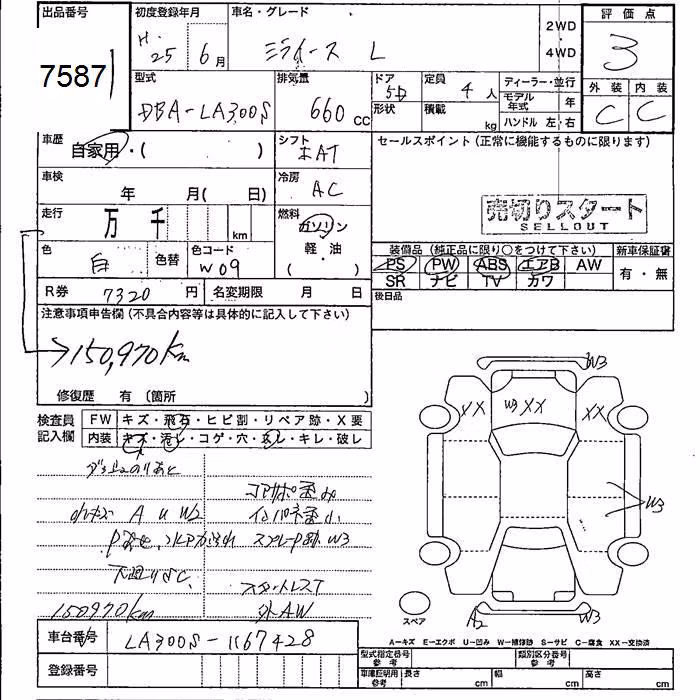 出品番号 7587
初度登録年月 H. 25年 6月
車名・グレード ミライース L
2WD ・ 4WD
評価点 3
外装 C 内装 C
型式 DBA-LA300S
排気量 660 cc
ドア 5D 形状
定員 4人 積載 kg
ディーラー・並行
モデル年式 年
ハンドル 左・右
車歴 自家用・( )
シフト AT
セールスポイント(正常に機能するものに限ります)
車検 年 月( 日)
冷房 AC
売切りスタート
SELLOUT
走行 万 千 km
燃料 ガソリン 軽・油 ( )
色 白 色替 色コード W09
装備品(純正品に限り○をつけて下さい) 新車保証書
PS PW ABS エアB AW 有・無
SR ナビ TV カワ
後日品
R券 7320円 名変期限 月 日
注意事項申告欄(不具合内容等は具体的に記入して下さい)
150,970Km
修復歴 有 〔箇所 〕
検査員記入欄 FW キズ・飛石・ヒビ割・リペア跡・X要
内装 キズ・汚レ・コゲ・穴・スレ・キレ・破レ
W3
XX W3 XX XX
W3
A2 W3
スペア
A U W2
W3
下廻りSC
スタットレスT
150970Km 外AW
A-キズ E-エクボ U-凹み W-補修跡 S-サビ C-腐食 XX-交換済
車台番号 LA300S-1167428
登録番号
型式指定番号 参考 類別区分番号 参考
車庫証明用 参考 長さ cm 幅 cm 高さ cm